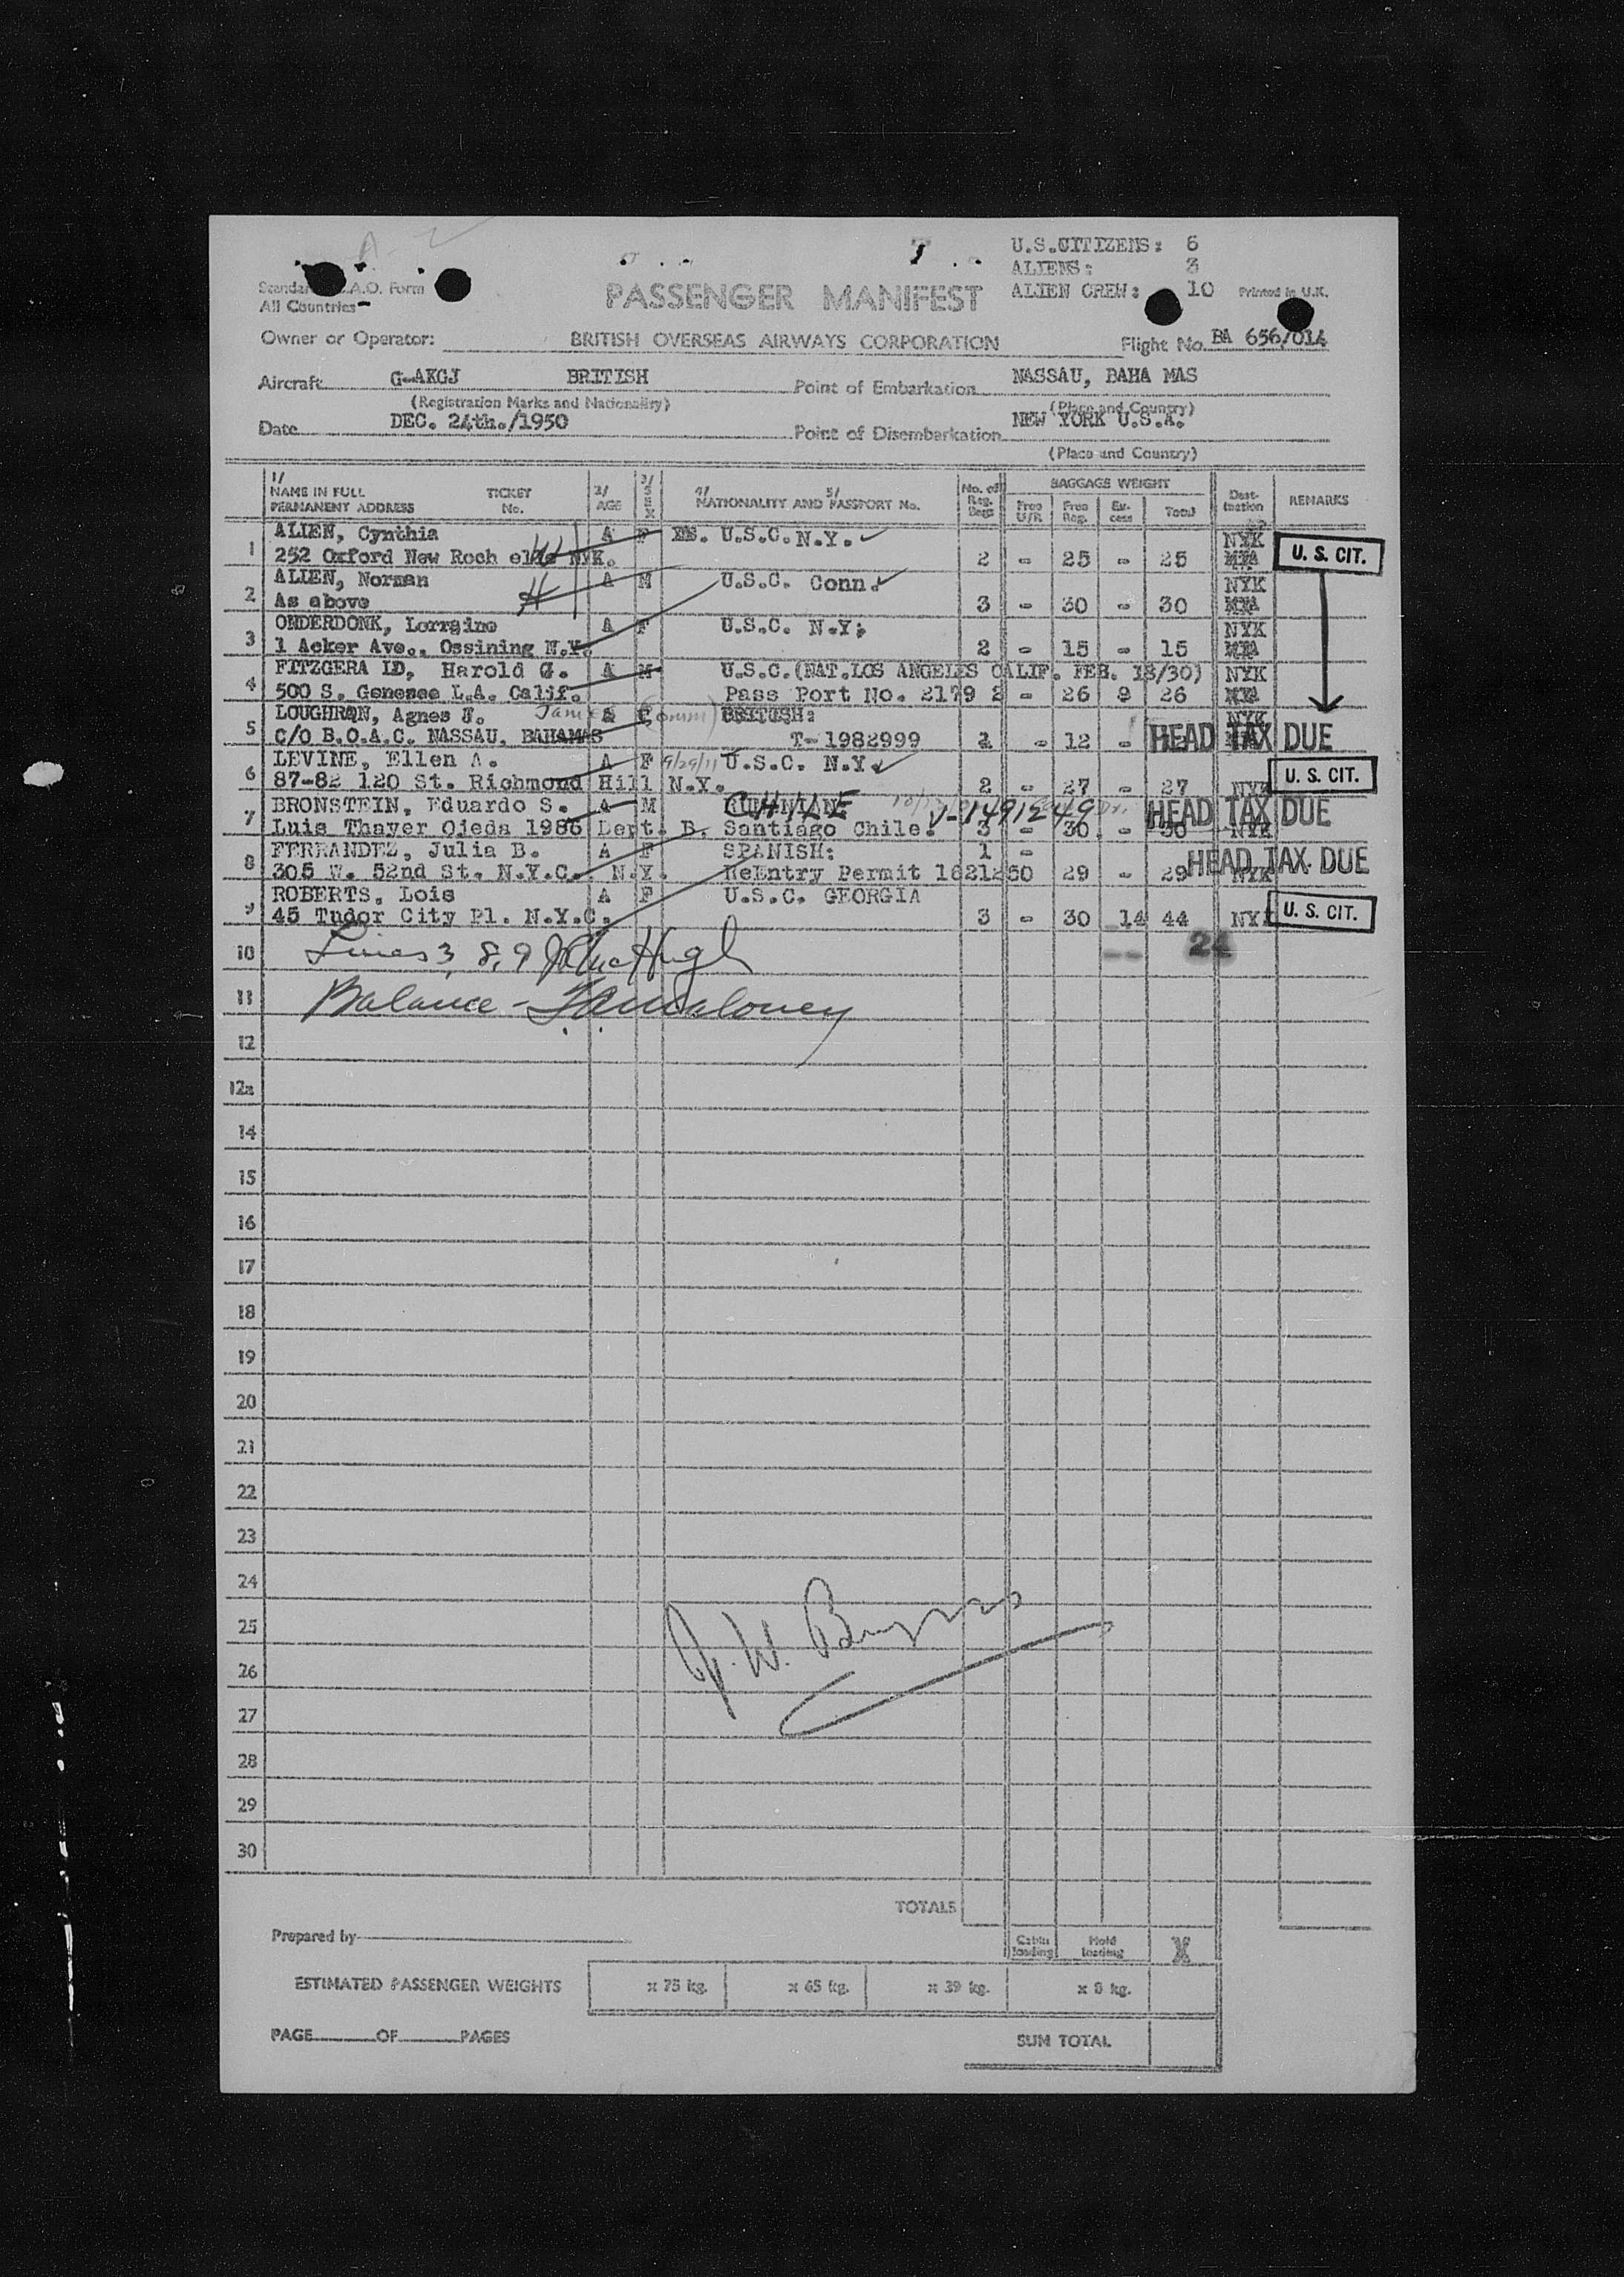 U.S.CITIZENS: 6
ALIENS: 3
ALIEN CREW: 10 Printed in U.K.
A.O. Form
All Countries
PASSENGER MANIFEST
Owner or Operator: BRITISH OVERSEAS AIRWAYS CORPORATION Flight No. BA 656/014
Aircraft G-AKGJ BRITISH Point of Embarkation NASSAU, BAHA MAS
(Registration Marks and Nationality) (Place and Country)
Date DEC. 24th./1950 Point of Disembarkation NEW YORK U.S.A.
(Place and Country)
1/ NAME IN FULL PERMANENT ADDRESS TICKET No. 2/ AGE 3/ SEX 4/ NATIONALITY AND 5/ PASSPORT No. No. of Reg. Bags BAGGAGE WEIGHT Free U/R Free Reg. Excess Total Destination REMARKS
1 ALIEN, Cynthia A F U.S.C. N.Y. NYK U. S. CIT.
252 Oxford New Roch elle NYK. 2 - 25 - 25
2 ALIEN, Norman A M U.S.C. Conn. NYK
As above 3 - 30 - 30
3 ONDERDONK, Lorraine A F U.S.C. N.Y. NYK
1 Acker Ave., Ossining N.Y. 2 - 15 - 15
4 FITZGERA LD, Harold G. A M U.S.C.(NAT.LOS ANGELES CALIF. FEB. 18/30) NYK
500 S. Genesee L.A. Calif. Pass Port No. 2179 2 - 26 9 26
5 LOUGHRAN, Agnes J. BRITISH: NYK
C/O B.O.A.C. NASSAU, BAHAMAS T-1982999 - 12 - HEAD TAX DUE
6 LEVINE, Ellen A. A F 9/29/11 U.S.C. N.Y.
87-82 120 St. Richmond Hill N.Y. 2 - 27 - 27 NYK U. S. CIT.
7 BRONSTEIN, Eduardo S. A M CHILE V-1491249 HEAD TAX DUE
Luis Thayer Ojeda 1986 Dept. B. Santiago Chile. 3 - 30 - 30 NYK
8 FERNANDEZ, Julia B. A F SPANISH: 1 -
305 W. 52nd St. N.Y.C. N.Y. ReEntry Permit 1621250 29 - 29 NYK HEAD TAX DUE
9 ROBERTS, Lois A F U.S.C. GEORGIA
45 Tudor City Pl. N.Y.C. 3 - 30 14 44 NYK U. S. CIT.
10 Lines 3, 8, 9 McHugh 24
11 Balance - Maloney
12
12a
14
15
16
17
18
19
20
21
22
23
24
25 W.
26
27
28
29
30
TOTALS
Prepared by Cabin loading Hold loading X
ESTIMATED PASSENGER WEIGHTS x 75 kg. x 65 kg. x 39 kg. x 8 kg.
PAGE OF PAGES SUM TOTAL